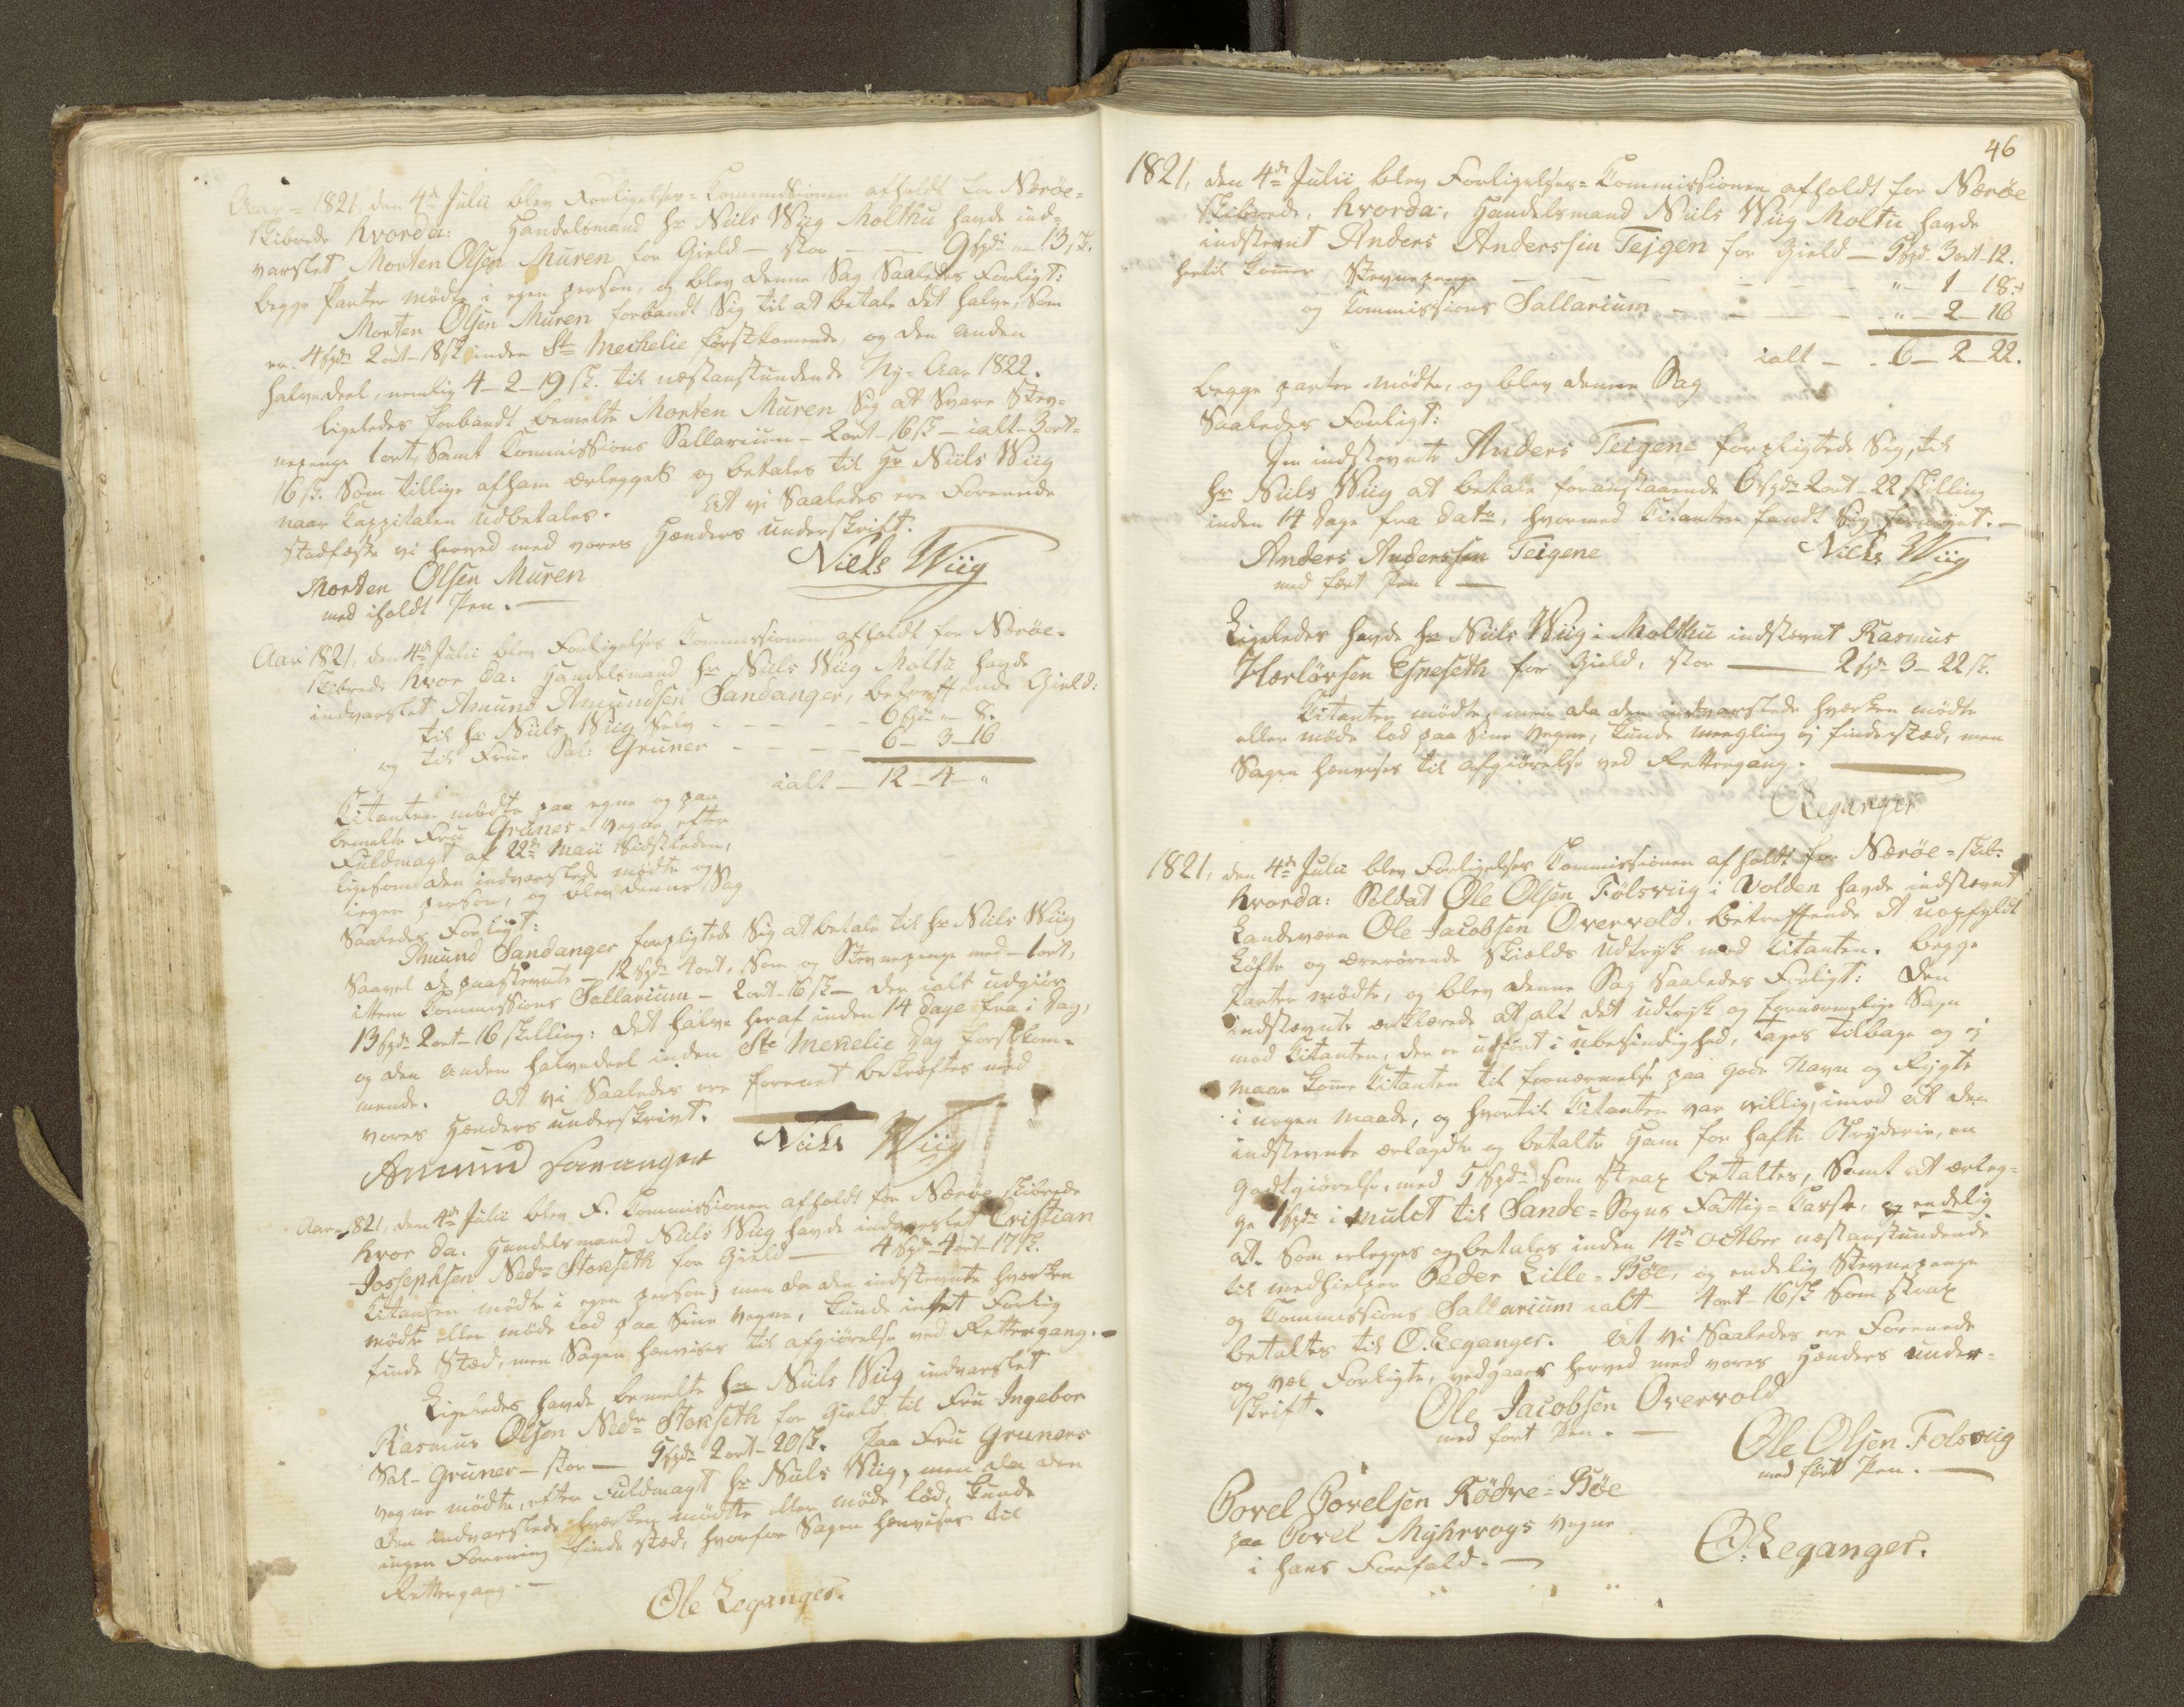 Aar = 1821, den 4de Julii blev Forligelses = Commissionen afholdt for Nærøe =
skibrede hvorda: Handelsmand Hr Niels Wiig Molthu havde ind=
varslet Morten Olsen Muren for Gield – stor – – 9 Spd – " – 13 s.
begge Parter mødte i egen person, og blev denne Sag Saaledes Forligt:
Morten Olsen Muren forbandt Sig til at betale det halve, som
er 4 Spd 2 ort – 18 s inden Ste Mechelie førstkomende, og den anden
halvedeel, nemlig 4 – 2 – 19 s. til næstanstundende Ny = Aar 1822.
Ligeledes forbandt bemelte Morten Muren Sig at Svare Stev=
nepenge 1 ort, Samt Commissions Sallarium – 2 ort – 16 s – ialt – 3 ort =
16 s. Som tillige af ham erlegges og betales til Hr Niels Wiig
naar Cappitalen udbetales. At vi Saaledes ere Foreende
stadfæste vi herved med vores Hænders underskrift.
Morten Olsen Muren Niels Wiig
med iholdt Pen. –
Aar 1821, den 4de Julii blev Forligelses Commissionen afholdt for Nærøe =
skibrede hvor da: Handelsmand Hr Niels Wiig Moltu havde
indvarslet Amund Amundsen Sandanger, betreffende Gield:
til Hr Niels Wiig Selv – – – – – 6 Spd – " – 8.
og til Frue Sal: Gruner – – – – 6 – 3 – 16
ialt – 12 – 4 – "
Citanten mødte paa egne og paa
bemelte Fru Gruners = vegne efter
Fuldmagt af 22de Maii Sidstleden,
ligesom den indvarslede mødte og
i egen person, og blev denne Sag
Saaledes Forligt:
Amund Sandanger forpligtede Sig at betale til Hr Niels Wiig
Saavel de paastevnte – 12 Spd 4 ort, som og Stevnepenge med – 1 ort,
ittem Commissions Sallarium – 2 ort – 16 s – der ialt udgiør
13 Spd 2 ort – 16 skilling: det halve heraf inden 14 dage fra i Dag,
og den anden halvedeel inden Ste Mekelie Dag førstkom=
mende. At vi Saaledes ere forenet bekræftes med
vores Hænders underskrivt.
Amund Sananger Niels Wiig
Aar 1821, den 4de Julii blev F. Commissionen afholdt for Nærøe skibrede
hvor da: Handelsmand Niels Wiig havde indvarslet Cristian
Jossephsen Nedre Stokseth for Gield – 4 Spd – 4 ort – 17 s.
Citanten mødte i egen person, men da den indstevnte hverken
mødte eller møde lod paa Sine vegne, kunde intet Forlig
finde Stæd, men Sagen henvises til afgiørelse ved Rettergang. –
Ligeledes havde bemelte Hr Niels Wiig indvarslet
Rasmus Olsen Nedre Stokseth for Gield til Fru Ingebor
Sal – Gruner – stor – 5 Spd 2 ort – 20 s. Paa Fru Gruners
vegne mødte, efter Fuldmagt Hr Niels Wiig, men da den
den indvarslede hverken mødtte eller møde lød, kunde
ingen Forening finde stæd, hvorfor Sagen henvises til
Rettergang. –
Ole Leganger.
46
1821, den 4de Julii blev Forligelses = Commissionen afholdt for Nærøe
skibrede, hvorda: Handelsmand Niels Wiig Moltu havde
indstevnt Anders Anderssen Teigen for Gield – 5 Spd 3 ort – 12.
hertil komer Stevnepenge – – – – – " – 1 – 18.
og Commissions Sallarium – – – – " – 2 – 16
ialt – 6 – 2 – 22.
begge parter mødte, og blev denne Sag
Saaledes Forligt:
Den indstevnte Anders Teigene forpligtede Sig, til
Hr Niels Wiig at betale foranstaaende 6 Spd 2 ort – 22 skilling
inden 14 Dage fra Dato, hvormed Citanten fandt Sig fornøyet. –
Anders Anderssen Teigene Niels Wiig
med ført Pen. –
Ligeledes havde Hr Niels Wiig i Molthu indstævnt Rasmus
for Gield, stor – 2 Spd – 3 – 22 s.
Citanten mødte, men da den indvarslede hverken mødte
eller møde lod paa Sine vegne, kunde meegling ej finde stæd, men
Sagen henvises til afgiørelse ved Rettergang.
Leganger
1821, den 4de Julii blev Forligelses Commissionen afholdt for Nærøe = skib:
hvorda: Soldat Ole Olsen Følsviig i Volden havde indstævnt
Landeværn Ole Jacobsen Overvold, betreffende et uopfyldt
Løfte og ærerørende Skields udtryk mod Citanten. begge
Parter mødte, og blev denne Sag Saaledes Forligt: Den
indstævnte erklærede at alt det udtryk og fornærmelige Sagn
mod Citanten, der er udført i ubesindighed, tages tilbage og ej
maae kome Citanten til fornærmelse paa gode Navn og Rygte
i nogen maade, og hvortil Citanten var villig, imod at den
indstevnte erlagdte og betalte Ham for hafte Bryderie, en
godtgiørelse, med 5 Spd som strax betaltes, Samt at erleg=
ge 1 Spd i mulct til Sande = Sogns Fattig = Casse, og endelig
at. Som erlegges og betales inden 14de octbr næstanstundende
til medhielper Peder Lille = Bøe, og endelig Stevnepenge
og Commissions Sallarium ialt – 4 ort – 16 s Som strax
betaltes til O. Leganger. At vi Saaledes ere Forenede
og vel Forligte, vedgaaes herved med vores Hænders under=
skrift. Ole Jacobsen Overvold
med ført Pen. – Ole Olsen Folsviig
med ført Pen. –
Povel Povelsen Rödre = Bøe
paa Povel Myhrvogs vegne
i hans Forfald. – O. Leganger.